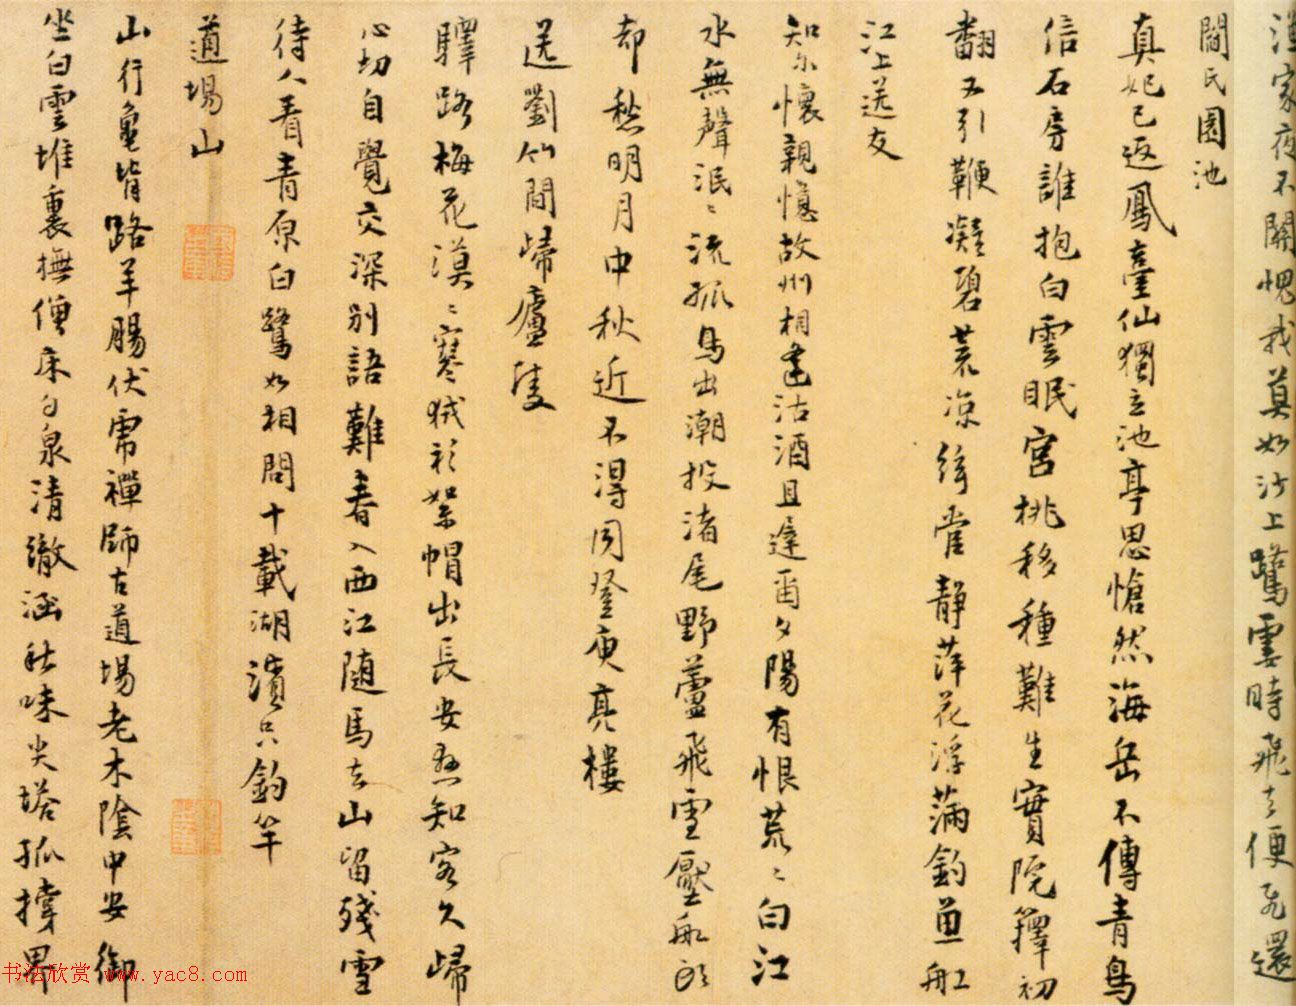 漢家夜不關愧我莫如沙上鷺霎時飛去便飛還
閻氏園池
真妃已返鳳臺仙獨立池亭思愴然海岳不傳青鳥
信石房誰抱白雲眠宮桃移種難生實院籜初
翻又引鞭凝碧荒凉絃管靜萍花浮滿釣魚船
江上送友
知尔懷親憶故州相逢沽酒且遲留夕陽有恨荒荒白江
水無聲泯泯流孤鳥出潮投渚尾野蘆飛雪壓船頭
却愁明月中秋近不得同登庾亮樓
送劉竹間歸廬陵
驛路梅花漠漠寒狨衫絮帽出長安忽知客久歸
心切自覺交深別語難春入西江隨馬去山留殘雪
待人看青原白鷺如相問十載湖濱只釣竿
道場山
山行龜背路羊腸伏虎禪師古道場老木陰中安御
坐白雲堆裏撫僧床勺泉清徹涵秋味尖塔孤撐界
书法欣赏 www.yac8.com